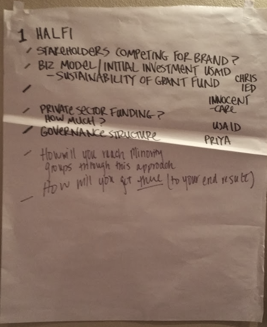 1 HALFI
STAKEHOLDERS COMPETING FOR BRAND?
BIZ MODEL/INITIAL INVESTMENT USAID
- SUSTAINABILITY OF GRANT FUND CHRIS
IED
INNOCENT
- CARE
PRIVATE SECTOR FUNDING?
HOW MUCH? USAID
GOVERNANCE STRUCTURE PRIYA
How will you reach Minority
groups through this approach
How will you get there (to your end result)